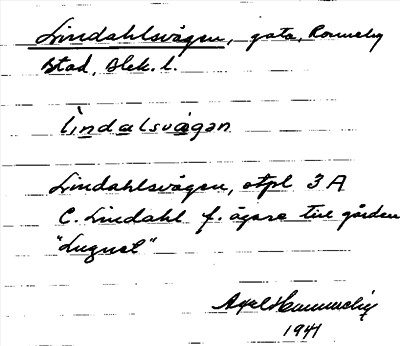 Lindahlsvägen, gata, Ronneby
stad, Blek. l.
lìndalsvä̀gan
Lindahlsvägen, stpl 3 A
C. Lindahl f. ägare till gården
"Lugnet"
Axel Hammelig
1941